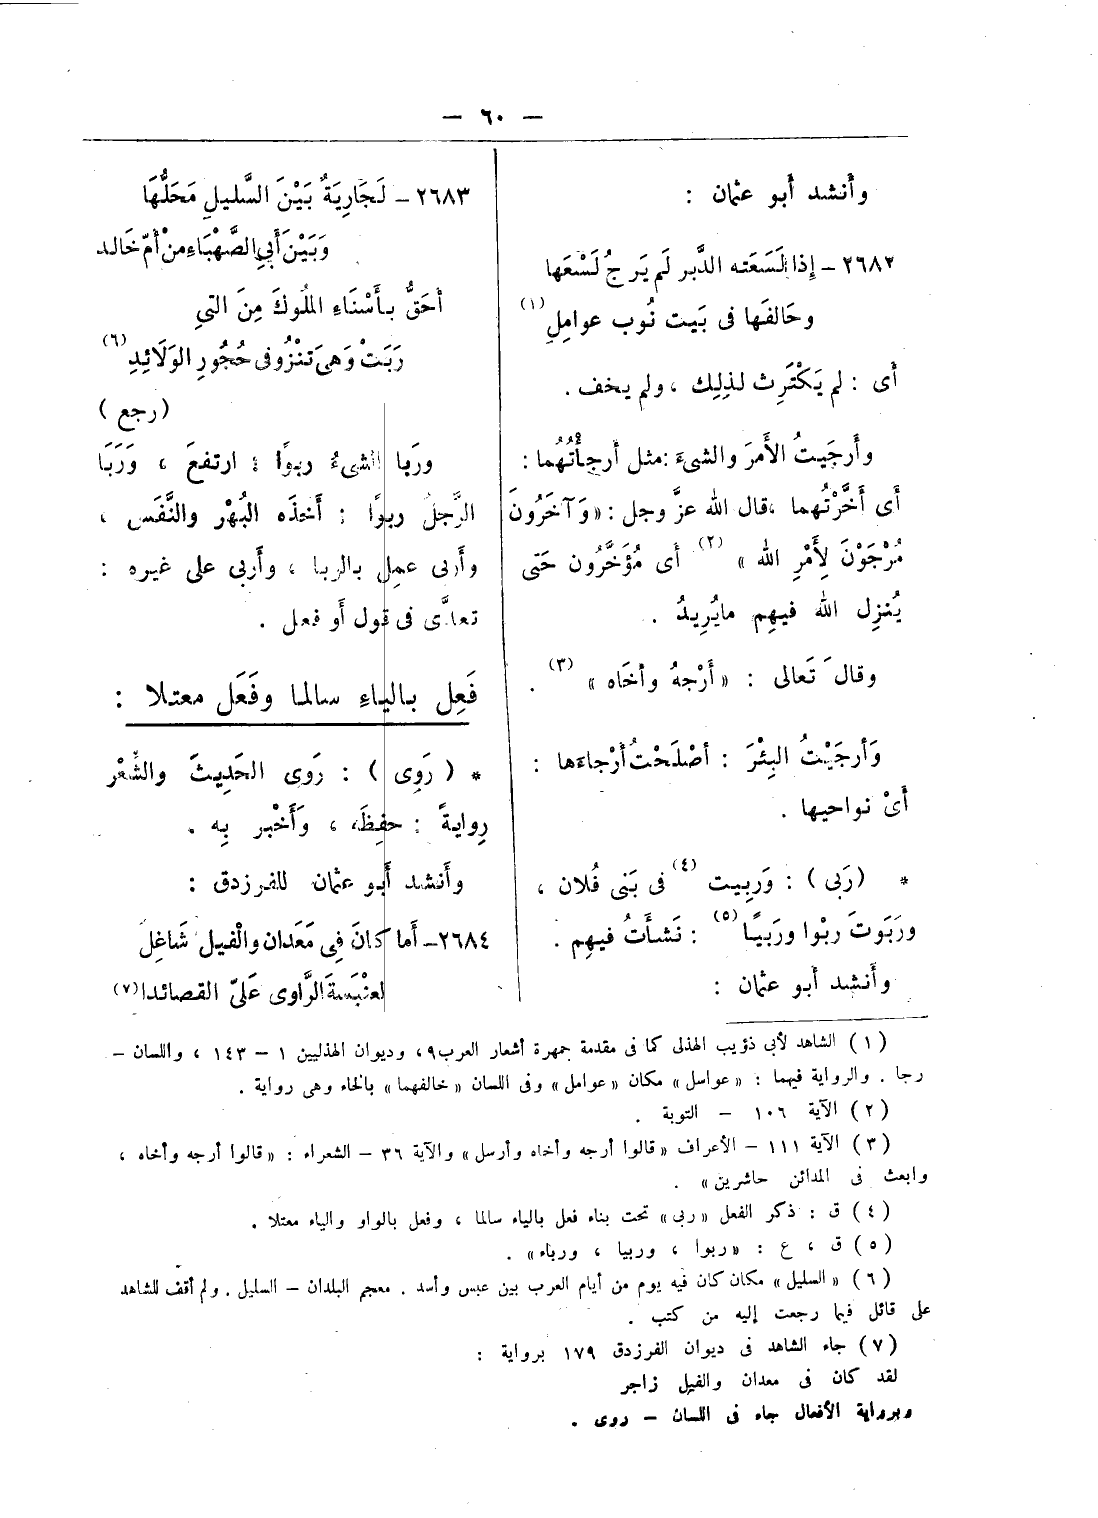 — ٦٠ —
وأَنشد أَبو عثمان :
٢٦٨٢ – إِذا لَسَعَته الدَّبر لَم يَرجُ لَسْعَها
وحَالفَها فى بَيت نُوب عوامِلِ (١)
أَى : لم يَكْتَرِث لذلِك ، ولم يخف .
وأَرجَيتُ الأَمرَ والشىءَ : مثل أَرجأْتُهُما :
أَى أَخَّرْتُهما ، قال الله عزَّ وجل : «وَآخَرُونَ
مُرْجَوْنَ لِأَمْرِ الله » (٢) أَى مُؤَخَّرُون حَتى
يُنزِل الله فيهِم مايُرِيدُ .
وقالَ تَعالى : «أَرْجهُ وأَخَاه» (٣) .
وَأَرجَيْتُ البِئْرَ : أَصْلَحْتُ أَرْجاءَها :
أَىْ نواحيها .
* (رَبى) : وَرَبِيت (٤) فى بَنى فُلان ،
ورَبَوتَ ربْوا ورَبيًا (٥) : نَشأَتُ فيهِم .
وأَنشد أَبو عثمان :
٢٦٨٣ – لَجَارِيَةٌ بَيْنَ السَّليلِ مَحَلُّهَا
وَبَيْنَ أَبىِ الصَّهْبَاءِ منْ أُمّ خَالد
أَحَقُّ بأَسْنَاءِ المُلُوكَ مِنَ التىِ
رَبَتْ وَهىَ تَنْزُو فى حُجُورِ الوَلَائِدِ (٦)
(رجع)
ورَبا الشىءُ ربوًا : ارتفعَ ، وَرَبَا
الرَّجلُ ربوًا : أَخذَه البُهْر والنَّفَس ،
وأَربى عمِل بالربا ، وأَربى على غيره :
تعدَّى فى قول أَو فعل .
فَعِل بالياءِ سالما وفَعَل معتلا :
* (رَوِى) : رَوَى الحَدِيثَ والشِّعْر
رِوايةً : حفِظَه ، وَأَخْبر بِه .
وأَنشد أَبو عثمان للفرزدق :
٢٦٨٤ – أَما كانَ فىِ مَعَدان والْفيل شَاغلِ
لعنْبَسة الرَّاوِى عَلىّ القصائدا (٧)
(١) الشاهد لأبى ذؤيب الهذلى كما فى مقدمة جمهرة أشعار العرب ٩، وديوان الهذليين ١ – ١٤٣ ، واللسان –
رجا . والرواية فيهما : «عواسل» مكان «عوامل» وفى اللسان «خالفهما» بالخاء وهى رواية .
(٢) الآية ١٠٦ – التوبة .
(٣) الآية ١١١ – الأعراف «قالوا أرجه وأخاه وأرسل» والآية ٣٦ – الشعراء : «قالوا أرجه وأخاه ،
وابعث فى المدائن حاشرين» .
(٤) ق : ذكر الفعل «ربى» تحت بناء فعل بالياء سالما ، وفعل بالواو والياء معتلا .
(٥) ق ، ع : «ربوا ، وربيا ، ورباء» .
(٦) «السليل» مكان كان فيه يوم من أيام العرب بين عبس وأسد . معجم البلدان – السليل . ولم أقف للشاهد
على قائل فيما رجعت إليه من كتب .
(٧) جاء الشاهد فى ديوان الفرزدق ١٧٩ برواية :
لقد كان فى معدان والفيل زاجر
وبرواية الأفعال جاء فى اللسان – روى .